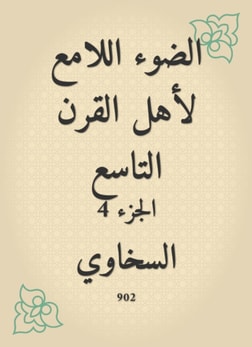 الضوء اللامع
لأهل القرن
التاسع
الجزء 4
السخاوي
902